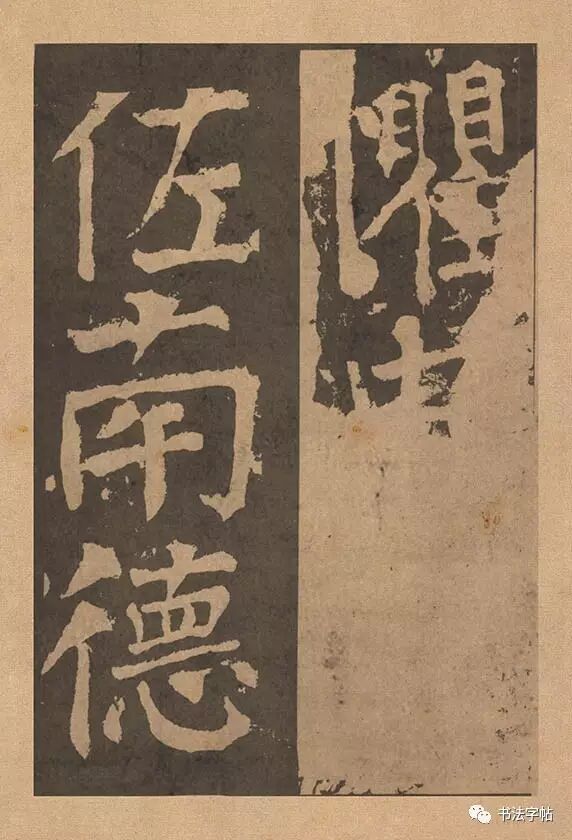 懼
佐南德
书法字帖